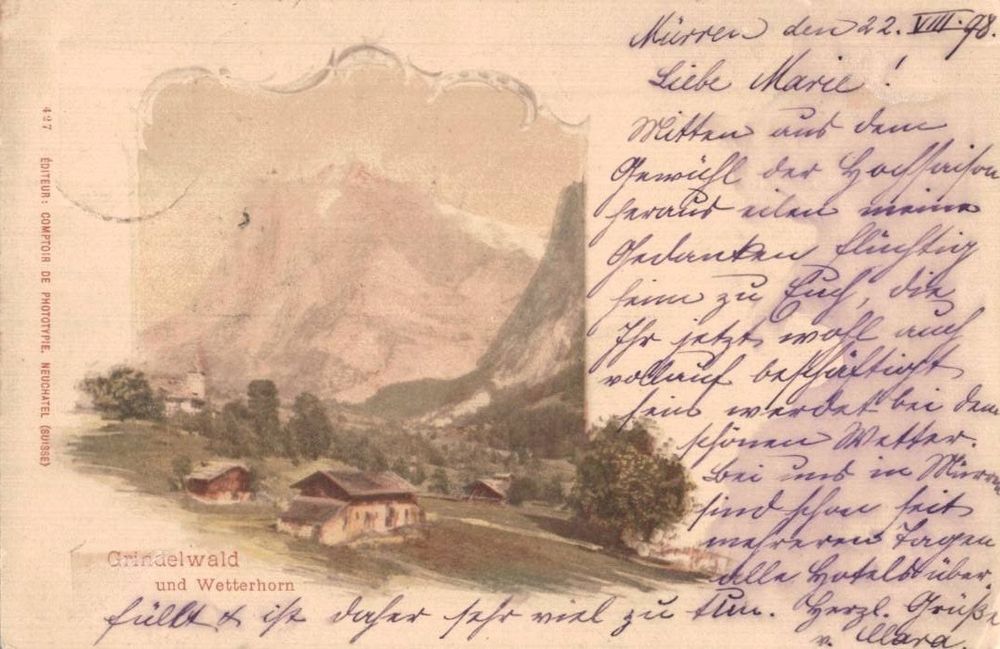 Mürren den 22. VIII. 98.
Liebe Marie!
Mitten aus dem
Gewühl der Hochsaison
heraus eilen meine
Gedanken flüchtig
heim zu Euch, die
Ihr jetzt wohl auch
vollauf beschäftigt
sein werdet bei dem
schönen Wetter.
Bei uns in Mürren
sind schon seit
mehreren Tagen
alle Hotels über-
füllt & ist daher sehr viel zu tun. Herzl. Grüße
v. Clara.
Grindelwald
und Wetterhorn
427 ÉDITEUR: COMPTOIR DE PHOTOTYPIE, NEUCHATEL (SUISSE)